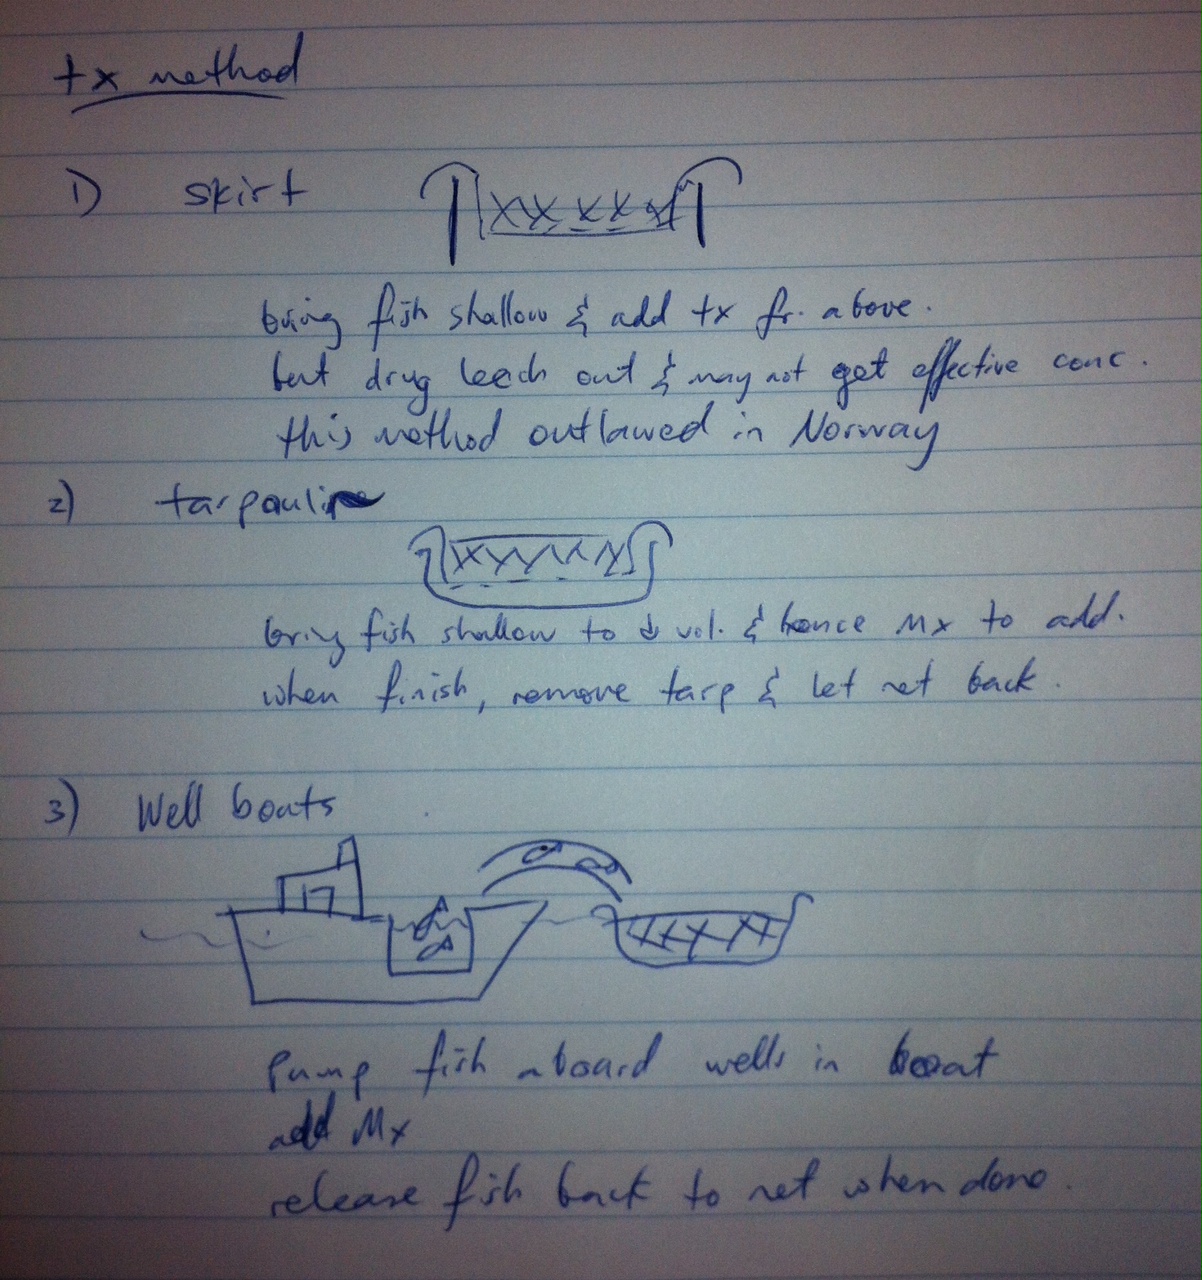 tx method
1) skirt
bring fish shallow & add tx fr. above.
but drug leech out & may not get effective conc.
this method outlawed in Norway
2) tarpaulin
bring fish shallow to ↓ vol. & hence Mx to add.
when finish, remove tarp & let net back.
3) Well boats
Pump fish aboard wells in boat
add Mx
release fish back to net when done.